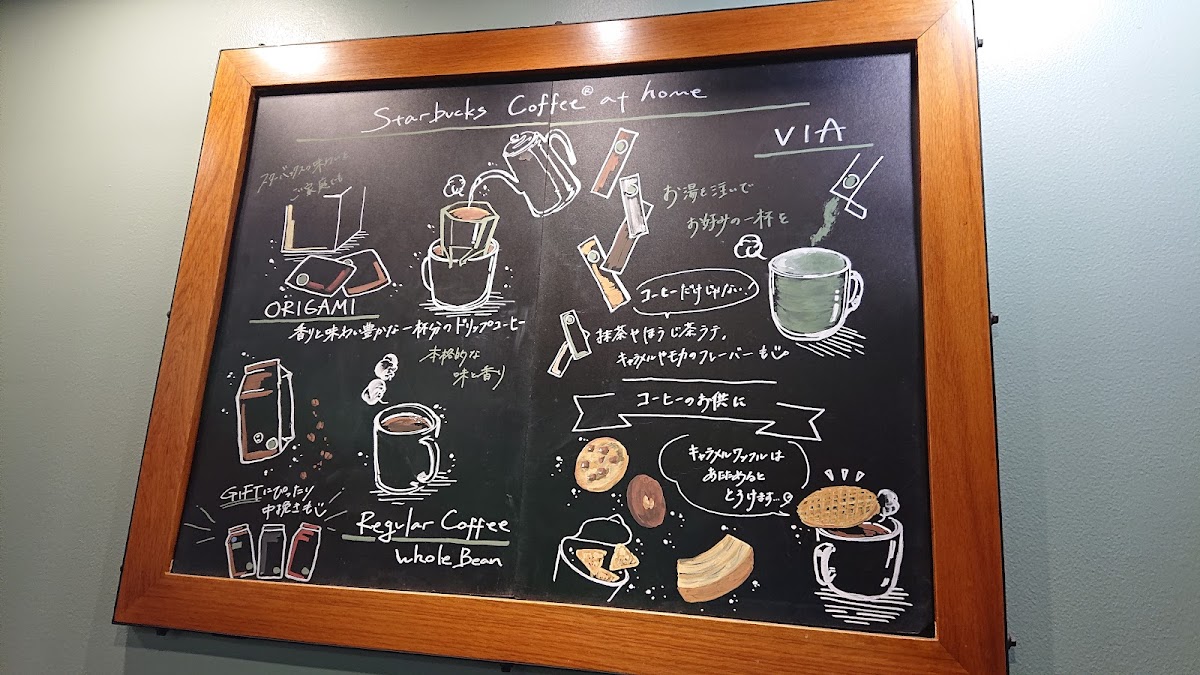 Starbucks Coffee® at home
スターバックスの味わいを
ご家庭でも
ORIGAMI
香りと味わい豊かな一杯分のドリップコーヒー
本格的な
味と香り
GIFTにぴったり
中挽きも
Regular Coffee
Whole Bean
VIA
お湯を注いで
お好みの一杯を
コーヒーだけじゃない!
抹茶やほうじ茶ラテ。
キャラメルやモカのフレーバーも
コーヒーのお供に
キャラメルワッフルは
あたためると
とろけます…